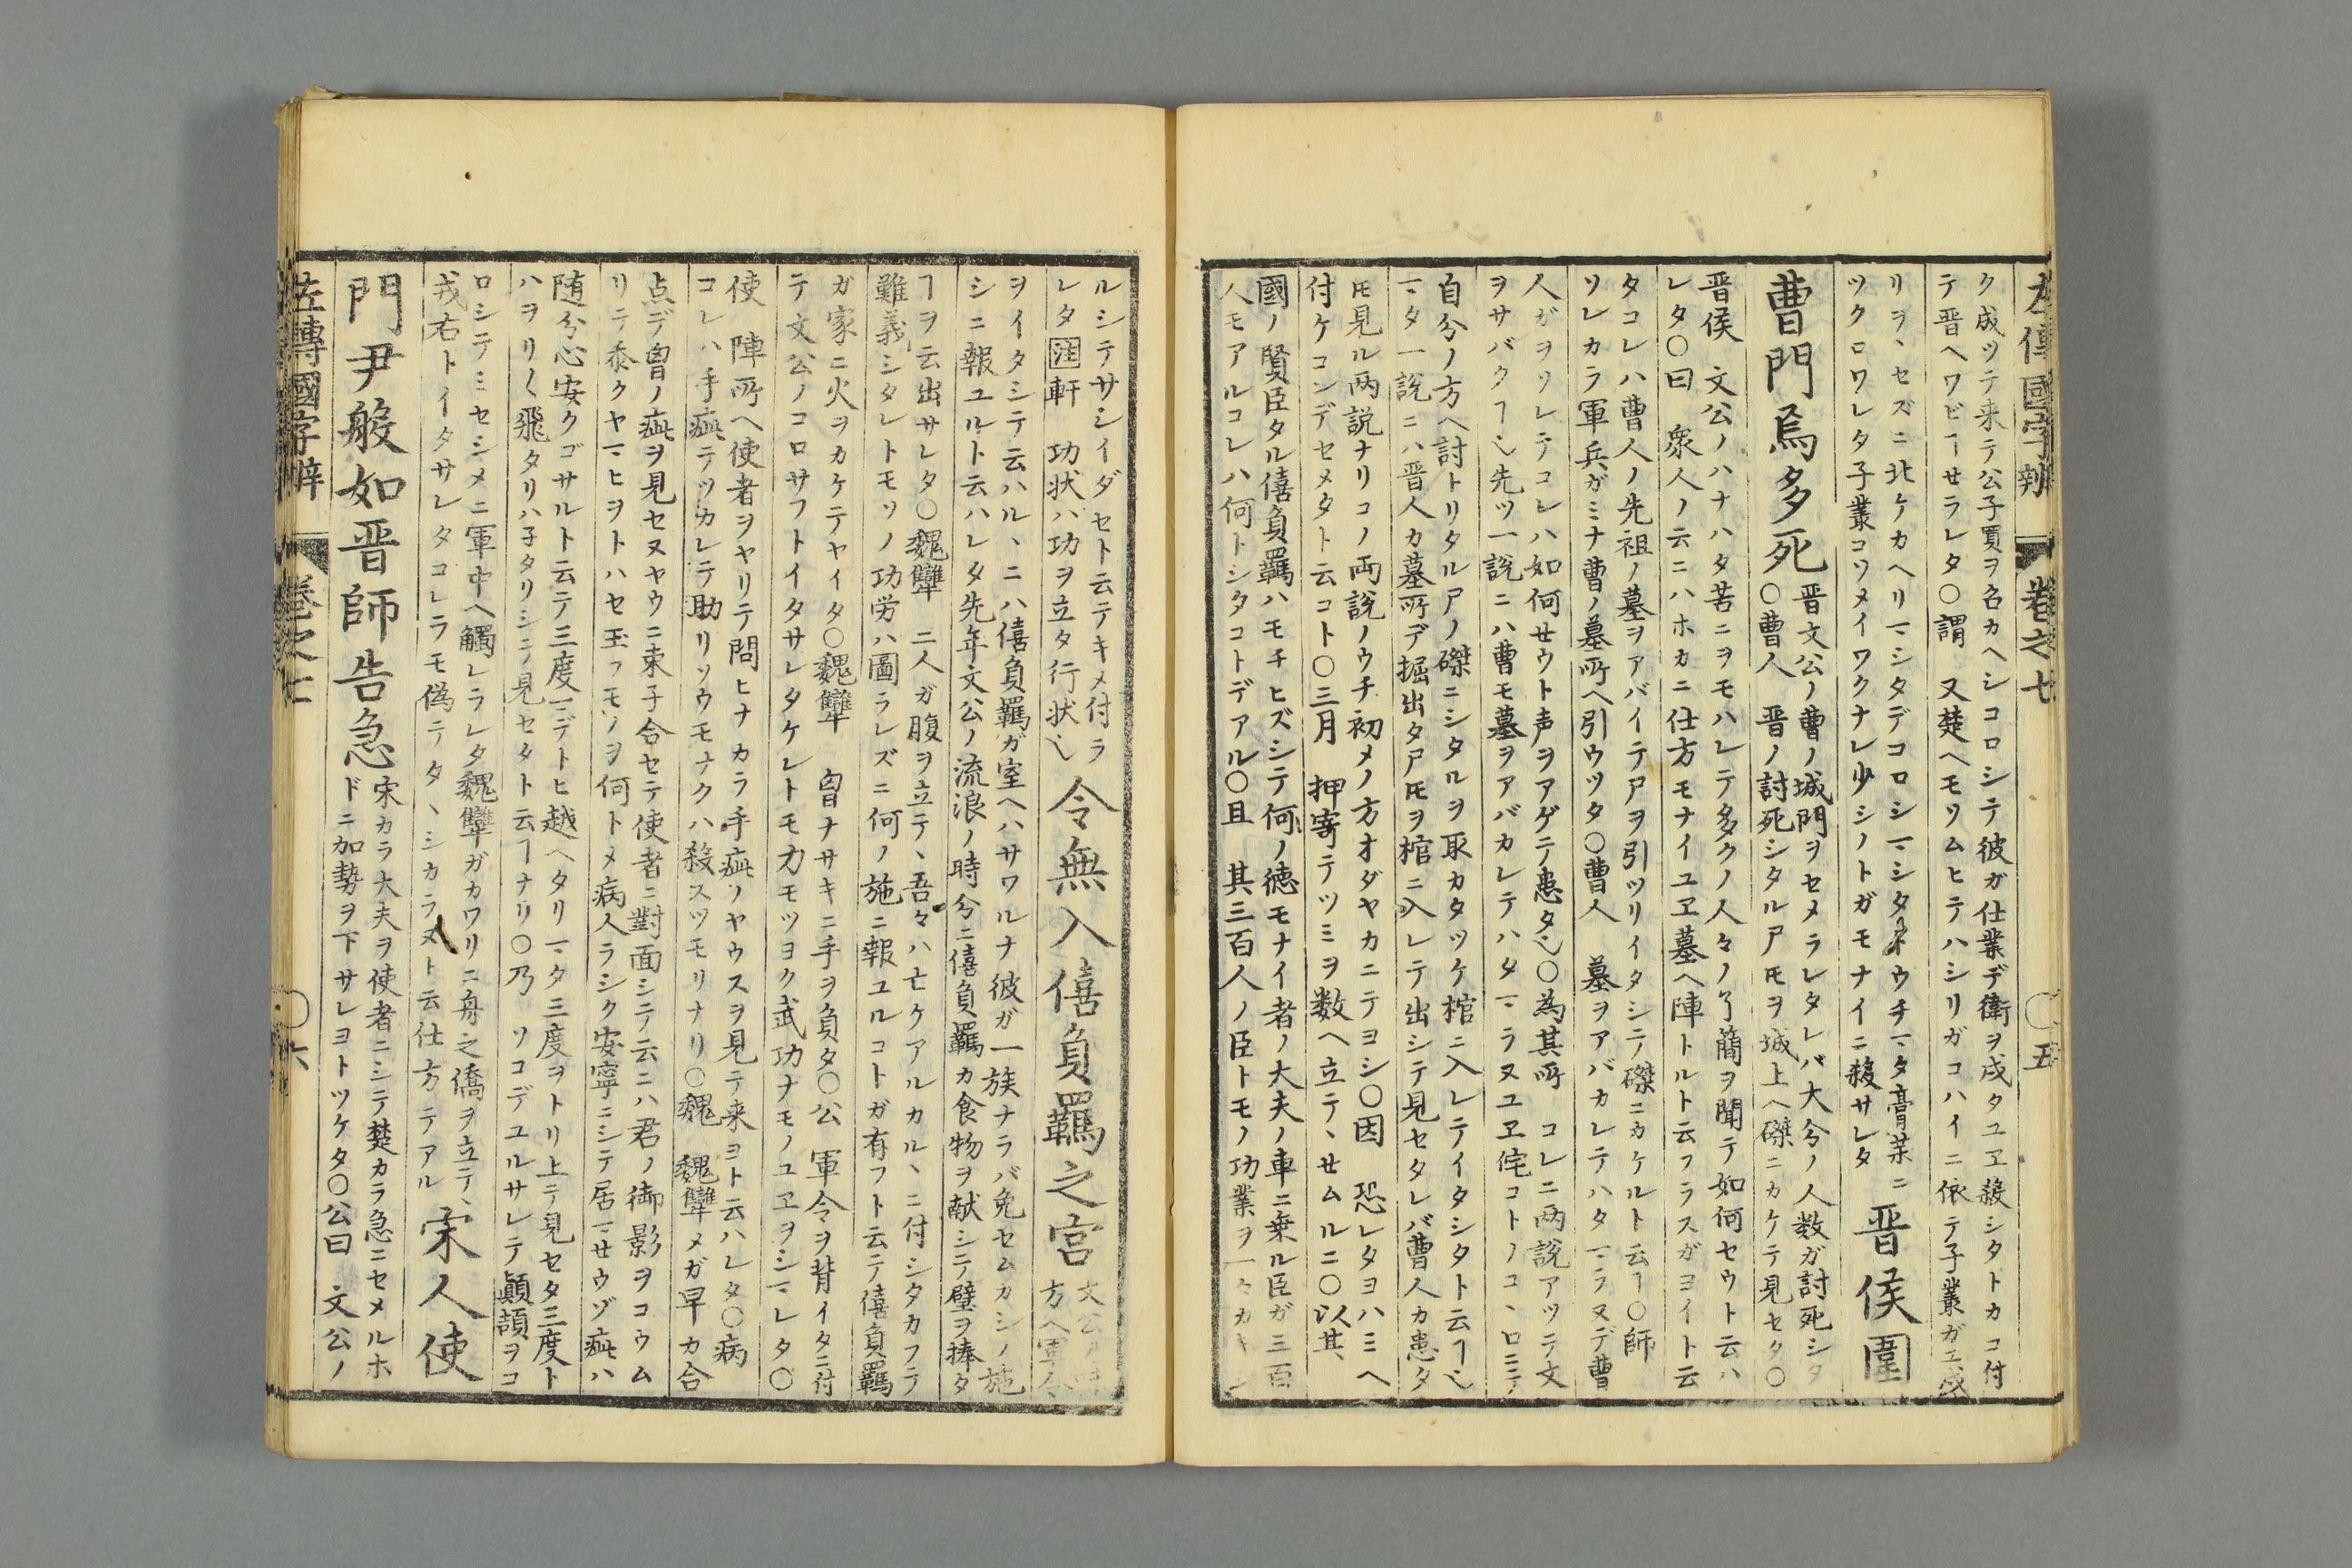 左傳國字辨 卷之七 〇五
ク成ツテ来テ公子買ヲ名カヘシコロシテ彼ガ仕業デ衛ヲ戌タユヱ殺シタトカコ付
テ晋ヘワビヿサラレタ〇謂 又楚ヘモソムヒテハシリガコハイニ依テ子叢ガ
リヲヽセズニ北ケカヘリマシタデコロシマシタトウチマタ膏ニ
ツクロワレタ子叢コソメイワクナレ少シノトガモナイニ殺サレタ 晋侯圍
曹門焉多死 晋文公ノ曹ノ城門ヲセメラレタレバ大分ノ人数ガ討死シタ
〇曹人 晋ノ討死シタルアヒヲ城上ヘ磔ニカケテ見セタ〇
晋侯 文公ノハナハタ苦ニヲモハレテ多クノ人々ノ了簡ヲ聞テ如何セウト云ハ
レタ〇曰 衆人ノ云ニハホカニ仕方モナイユヱ墓ヘ陣トルト云フラスガヨイト云
タコレハ曹人ノ先祖ノ墓ヲアバイテ尸ヲ引ツリイタシテ磔ニカケルト云ヿ〇師
ソレカラ軍兵ガミナ曹ノ墓所ヘ引ウツタ〇曹人 墓ヲアバカレテハタマラヌデ曹
人ガヲソレテコレハ如何せウト声ヲアゲテ患タ〇為其所 コレニ两説アツテ文
ヲサバクヿ先ツ一説ニハ曹モ墓ヲアバカレテハタマラヌユヱ侘コトノコヽロニテ
自分ノ方ヘ討トリタル尸ノ磔ニシタルヲ取カタツケ棺ニ入レテイタシタト云ヿ
マタ一説ニハ晋人カ墓所デ掘出タ尸ヒヲ棺ニ入レテ出シテ見セタレバ曹人カ患タ
ト見ル两説ナリコノ両説ノウチ初メノ方オダヤカニテヨシ〇因 恐レタヨハミヘ
付ケコンデセメタト云コト〇三月 押寄テツミヲ数ヘ立テヽせムルニ〇以其、
國ノ賢臣タル僖負羈ハモチヒズシテ何ノ徳モナイ者ノ大夫ノ車ニ乗ル臣ガ三百
人モアルコレハ何トシタコトデアル〇且 其三百人ノ臣トモノ功業ヲ一々カキ
ルシテサシイダセト云テキメ付ラ
レタ 注 軒 功状ハ功ヲ立タ行状 令無入僖負羈之宮 文公ノ
方ヘ軍令
ヲイタシテ云ハルヽニハ僖負羈ガ室ヘハサワルナ彼ガ一族ナラバ免セムカシノ施
シニ報ユルト云ハレタ先年文公ノ流浪ノ時分ニ僖負羈カ食物ヲ献シテ璧ヲ捧タ
ヿヲ云出サレタ〇魏犨 二人ガ腹ヲ立テヽ吾々ハ亡ケアルカルヽニ付シタカフテ
難義シタレトモソノ功労ハ圖ラレズニ何ノ施ニ報ユルコトガ有フト云テ僖負羈
ガ家ニ火ヲカケテヤイタ〇魏犨 曾ナサキニ手ヲ負タ〇公 軍令ヲ背イタニ付
テ文公ノコロサフトイタサレタケレトモ力モツヨク武功ナモノユヱヲシマレタ〇
使 陣所ヘ使者ヲヤリテ問ヒナカラ手疵ノヤウスヲ見テ来ヨト云ハレタ〇病
コレハ手疵テツカレテ助リソウモナクハ殺スツモリナリ〇魏 魏犨メガ早カ合
点デ曾ノ疵ヲ見セヌヤウニ束子合セテ使者ニ對面シテ云ニハ君ノ御影ヲコウム
リテ忝クヤマヒヲトハセ玉フモノヲ何トメ病人ラシク安寧ニシテ居マせウゾ疵ハ
随分心安クゴサルト云テ三度マデトヒ越ヘタリマタ三度ヲトリ上テ見セタ三度ト
ハヲリ〱飛タリハ子タリシテ見セタト云ヿナリ〇乃 ソコデユルサレテ顛頡ヲコ
ロシテミセシメニ軍中ヘ觸レラレタ魏犨ガカワリニ舟之僑ヲ立テヽ
戎右トイタサレタコレラモ偽テタヽシカラヌト云仕方テアル 宋人使
門尹般如晋師告急 宋カラ大夫ヲ使者ニシテ楚カラ急ニセメルホ
ドニ加勢ヲ下サレヨトツケタ〇公曰 文公ノ
左傳國字辨 卷之七 〇六